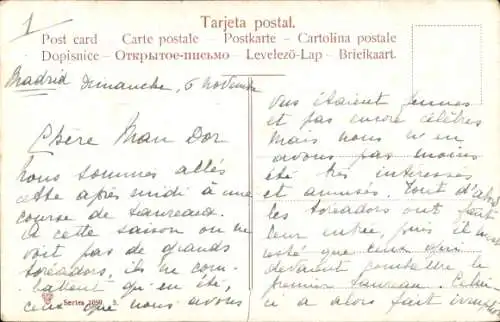 1
Tarjeta postal.
Post card Carte postale Postkarte Cartolina postale
Dopisnice – Открытое-письмо – Levelező-Lap – Briefkaart.
Madrid Dimanche, 6 Novembre
Chère Man Dor
nous sommes allés
cette après midi à une
course de taureaux.
A cette saison on ne
voit pas de grands
toréadors, ils ne com-
battent qu'en été,
ceux que nous avons
Series 7050 3.
vus étaient jeunes
et pas encore célèbres
mais nous n'en
avons pas moins
été très intéressés
et amusés. Tout d'abord
les toréadors ont fait
leur entrée, puis il n'est
resté que ceux qui
devaient combattre le
premier taureau. Celui-
ci a alors fait